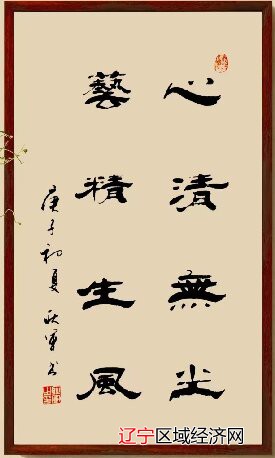 心清無尘
藝精生風
庚子初夏 秋军书
辽宁区域经济网